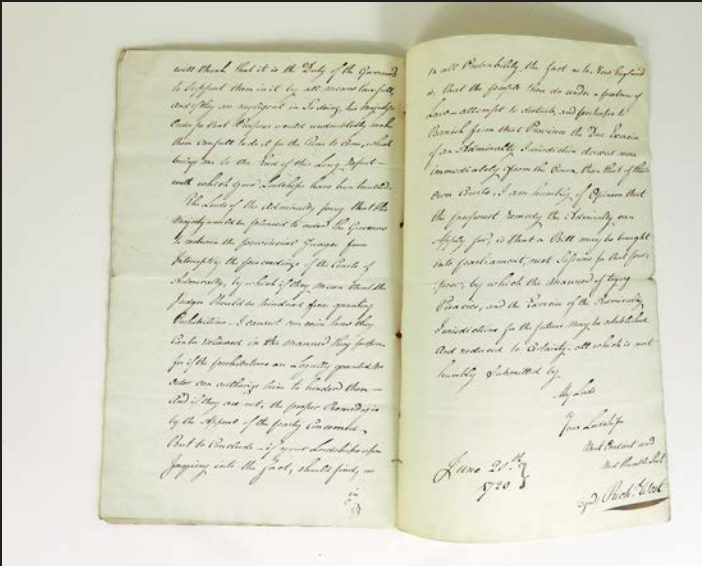 will think that it is the Duty of the Governors
to support them in it by all means lawfull,
and if they are negligent in so doing, his Majestys
Orders for that Purpose would undoubtedly make
them carefull to do it for the time to come, which
brings me to the End of this Long Report
with which your Lordships have been troubled.
The Lords of the Admiralty pray that His
Majesty would be pleased to order the Governors
to restrain the provincial Judges from
Interrupting the proceedings of the Courts of
Admiralty, by which if they mean that the
Judges should be hindred from granting
Prohibitions I cannot conceive how they
can be relieved in the manner they propose
for if the prohibitions are legally granted no
order can authorize him to hinder them
and if they are not, the proper Remedy is
by the Appeal of the party Concerned,
But to Conclude if your Lordships upon
Inquiry into the Fact, should find, as
in
in all Probability, the fact as to New England
is, that the people there do under a pretence of
Law attempt to disturb, and perhaps to
Banish from that Province the Due Exercise
of an Admiralty Jurisdiction derived more
immediately from the Crown, than that of their
own Courts, I am humbly of Opinion that
the properest remedy the Admiralty can
Apply for, is that a Bill may be brought
into parliament, next Sessions for that pur-
-pose, by which the manner of trying
Pirates, and the Exercise of the Admiralty
Jurisdiction for the future may be established
and reduced to Certainty: all which is most
humbly Submitted by
My Lords
Your Lordships
Most Obedient and
Most Humble Servt
June 20th
1720
(signed) Richd. West